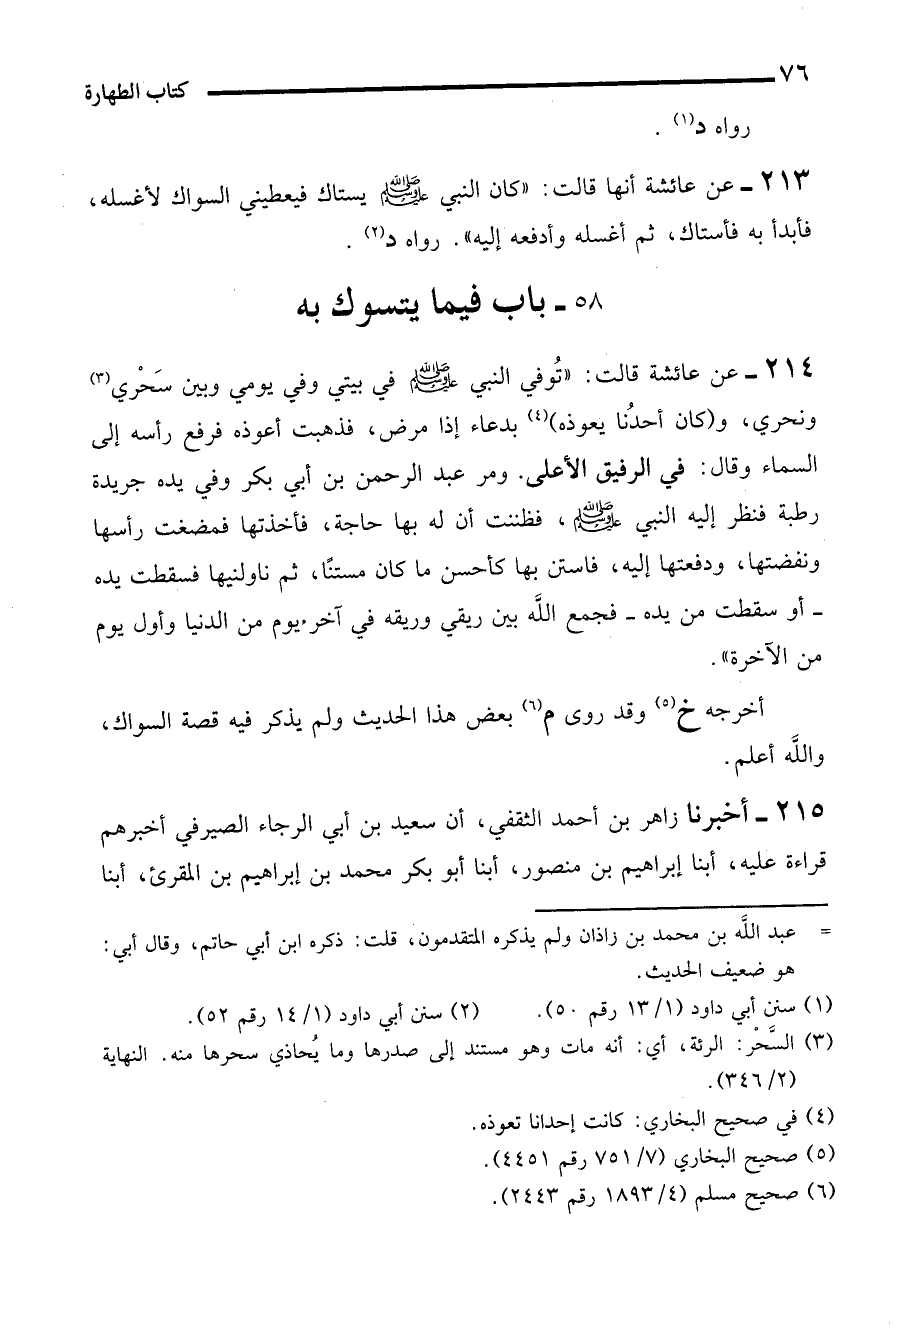 ٧٦ كتاب الطهارة
رواه د(١) .
٢١٣ ـ عن عائشة أنها قالت: «كان النبي ﷺ يستاك فيعطيني السواك لأغسله،
فأبدأ به فأستاك، ثم أغسله وأدفعه إليه». رواه د(٢) .
٥٨ ـ باب فيما يتسوك به
٢١٤ ـ عن عائشة قالت: «تُوفي النبي ﷺ في بيتي وفي يومي وبين سَحْري(٣)
ونحري، و(كان أحدُنا يعوذه)(٤) بدعاء إذا مرض، فذهبت أعوذه فرفع رأسه إلى
السماء وقال: في الرفيق الأعلى. ومر عبد الرحمن بن أبي بكر وفي يده جريدة
رطبة فنظر إليه النبي ﷺ، فظننت أن له بها حاجة، فأخذتها فمضغت رأسها
ونفضتها، ودفعتها إليه، فاستن بها كأحسن ما كان مستنًا، ثم ناولنيها فسقطت يده
ـ أو سقطت من يده ـ فجمع اللَّه بين ريقي وريقه في آخر يوم من الدنيا وأول يوم
من الآخرة».
أخرجه خ(٥) وقد روى م(٦) بعض هذا الحديث ولم يذكر فيه قصة السواك،
واللَّه أعلم.
٢١٥ ـ أخبرنا زاهر بن أحمد الثقفي، أن سعيد بن أبي الرجاء الصيرفي أخبرهم
قراءة عليه، أبنا إبراهيم بن منصور، أبنا أبو بكر محمد بن إبراهيم بن المقرئ، أبنا
= عبد اللَّه بن محمد بن زاذان ولم يذكره المتقدمون، قلت: ذكره ابن أبي حاتم، وقال أبي:
هو ضعيف الحديث.
(١) سنن أبي داود (١٣/١ رقم ٥٠). (٢) سنن أبي داود (١٤/١ رقم ٥٢).
(٣) السَّحْر: الرئة، أي: أنه مات وهو مستند إلى صدرها وما يُحاذي سحرها منه. النهاية
(٣٤٦/٢).
(٤) في صحيح البخاري: كانت إحدانا تعوذه.
(٥) صحيح البخاري (٧٥١/٧ رقم ٤٤٥١).
(٦) صحيح مسلم (١٨٩٣/٤ رقم ٢٤٤٣).